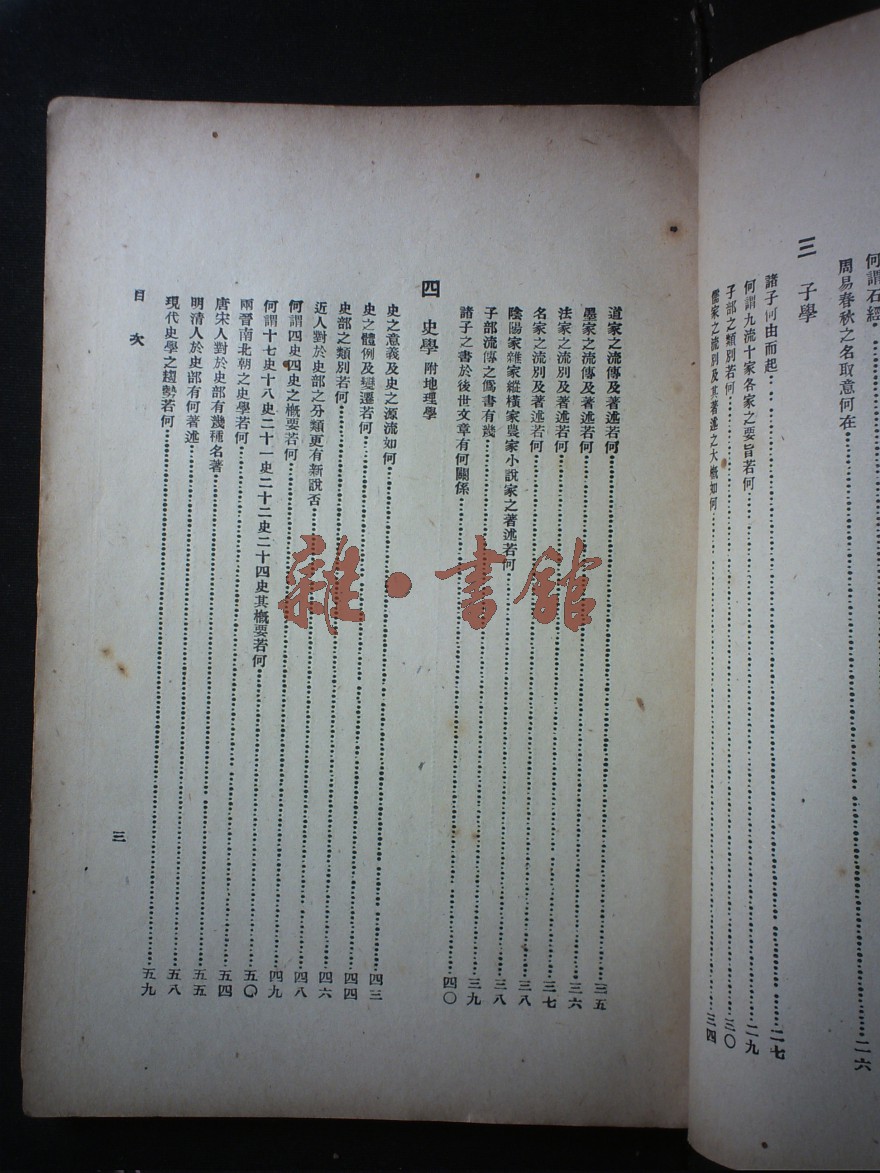 何謂石經……二六
周易春秋之名取意何在
三 子學
諸子何由而起……二七
何謂九流十家各家之要旨若何……二九
子部之類別若何……三〇
儒家之流別及其著述之大概如何……三四
道家之流傳及著述若何……三五
墨家之流傳及著述若何……三六
法家之流別及著述若何……三七
名家之流別及著述若何……三八
陰陽家雜家縱橫家農家小說家之著述若何……三八
子部流傳之僞書有幾……三九
諸子之書於後世文章有何關係……四〇
四 史學 附地理學
史之意義及史之源流如何……四三
史之體例及變遷若何……四四
史部之類別若何……四六
近人對於史部之分類更有新說否……四八
何謂四史四史之槪要若何……四九
何謂十七史十八史二十一史二十二史二十四史其槪要若何……五〇
兩晉南北朝之史學若何……五四
唐宋人對於史部有幾種名著……五五
明清人於史部有何著述……五八
現代史學之趨勢若何……五九
目次
三
雜·書館